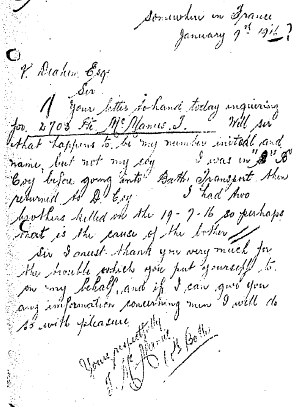 Somewhere in France
January 9th 191
V. Deakin Esq
Sir
Your letter to hand today inquiring
for 2703 Pte McManus. J. Well sir
that happens to be my number initial and
name, but not my coy I was in "B"
Coy before going into Battn Transport then
returned to D Coy I had two
brothers killed on the 19-7-16 so perhaps
that is the cause of the bother
Sir I must thank you very much for
the trouble which you put yourself to
on my behalf, and if I can give you
any information concerning men I will do
so with pleasure
Yours respectfully
J. McManus
Battn